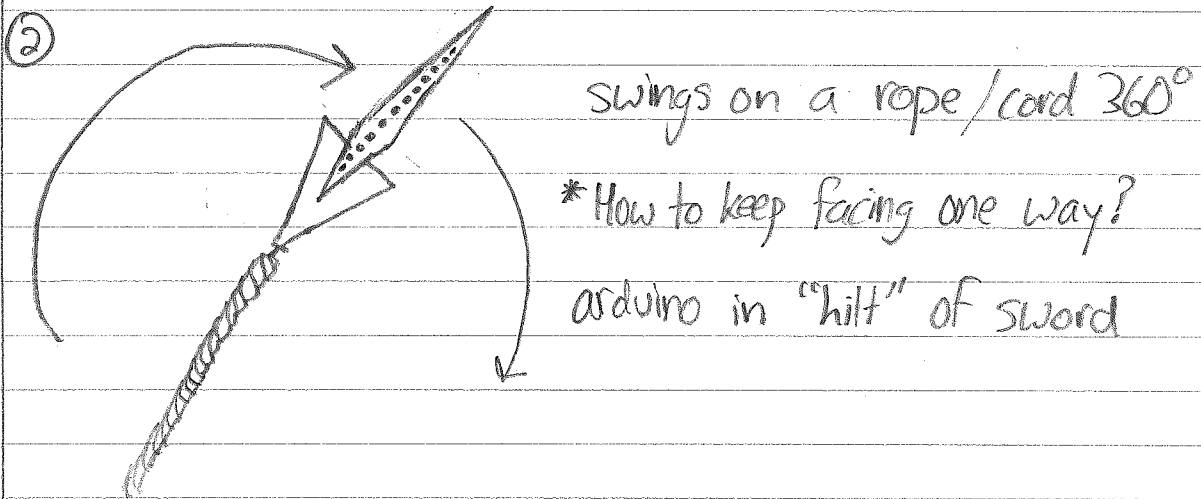 ②
swings on a rope/cord 360°
*How to keep facing one way?
arduino in "hilt" of sword